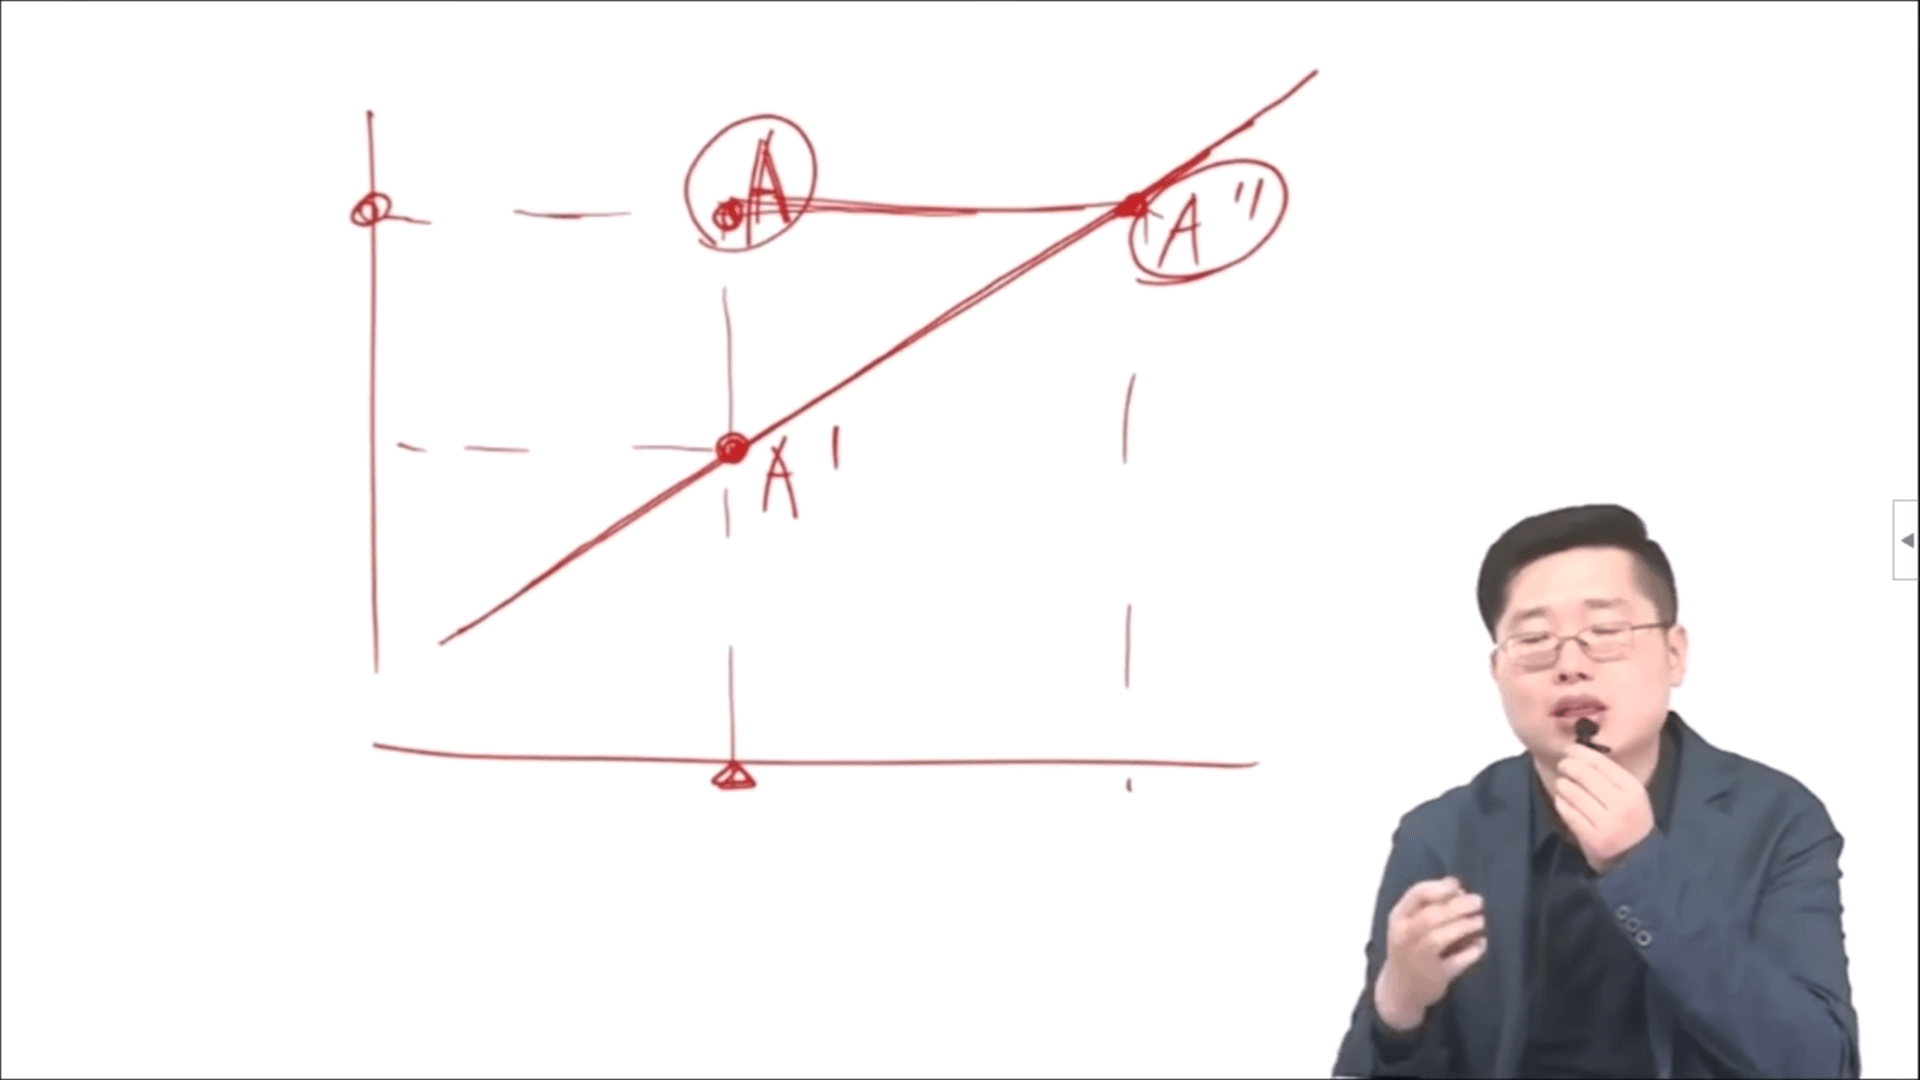 A
A''
A'